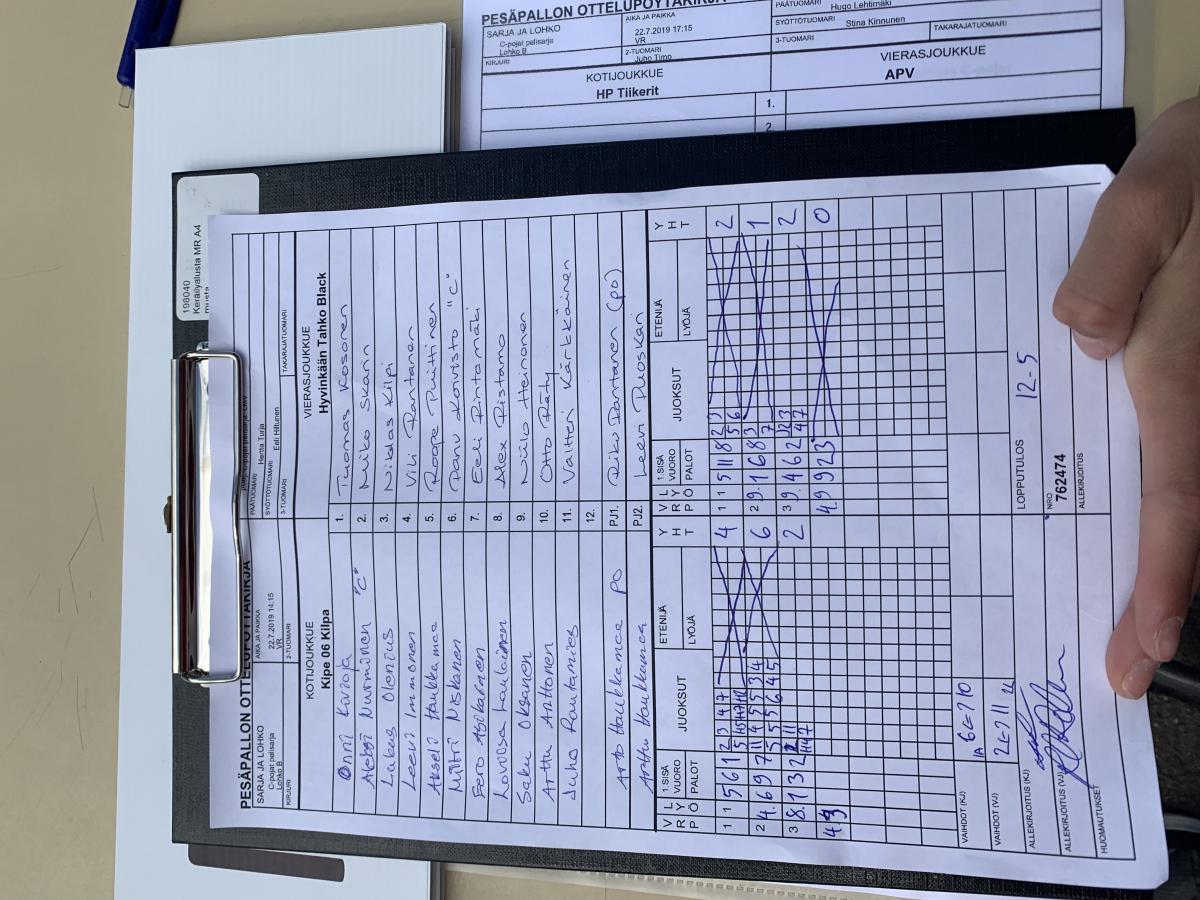 PESÄPALLON OTTELUPÖYTÄKIRJA
SARJA JA LOHKO
C-pojat pelisarja
Lohko B
AIKA JA PAIKKA
22.7.2019 17:15
VR
PÄÄTUOMARI
Hugo Lehtimäki
SYÖTTÖTUOMARI
Stina Kinnunen
KIRJURI
2-TUOMARI
Juho Timo
3-TUOMARI
TAKARAJATUOMARI
KOTIJOUKKUE
HP Tiikerit
VIERASJOUKKUE
APV
1.
2.
198040
Keräilyalusta MR A4
musta
PESÄPALLON OTTELUPÖYTÄKIRJA
SARJA JA LOHKO
C-pojat pelisarja
Lohko B
AIKA JA PAIKKA
22.7.2019 14:15
VR
PÄÄTUOMARI
Hertta Turja
SYÖTTÖTUOMARI
Eeli Hiltunen
KIRJURI
2-TUOMARI
3-TUOMARI
TAKARAJATUOMARI
KOTIJOUKKUE
Kipe 06 Kilpa
VIERASJOUKKUE
Hyvinkään Tahko Black
Onni Kuroja 1. Tuomas Kosonen
Aleksi Nurminen "C" 2. Miko Skarin
Lukas Olenius 3. Niklas Kilpi
Leevi Immonen 4. Vili Rantanen
Akseli Haukkamaa 5. Roope Puittinen
Miitri Niskanen 6. Panu Koivisto "C"
Eero 7. Eeli Rintamäki
8. Alex Ristamo
Saku Oksanen 9. Niilo Heinonen
Arttu Anttonen 10. Otto Räty
Juho Rautamies 11. Valtteri Kärkkäinen
12.
Arto Haukkamaa PO PJ1. Riku Rantanen (PO)
Arttu Haukkamaa PJ2. Leevi Ruoskari
VRP LYÖ 1.SISÄ VUORO PALOT JUOKSUT ETENIJÄ LYÖJÄ YHT VRP LYÖ 1.SISÄ VUORO PALOT JUOKSUT ETENIJÄ LYÖJÄ YHT
1 1 5 6 1 2 3 4 7 4 1 1 5 11 8 2 3 2
2 4. 6 9 7 6 2 9. 1 6 8 3 1
3 8. 1 3 2 2 3 9. 4 6 2 2
4. 9 4. 9 9 2 3 0
VAIHDOT (KJ)
1A 6=7 10
VAIHDOT (VJ)
LOPPUTULOS
12-5
ALLEKIRJOITUS (KJ)
NRO
762474
ALLEKIRJOITUS (VJ)
ALLEKIRJOITUS
HUOMAUTUKSET